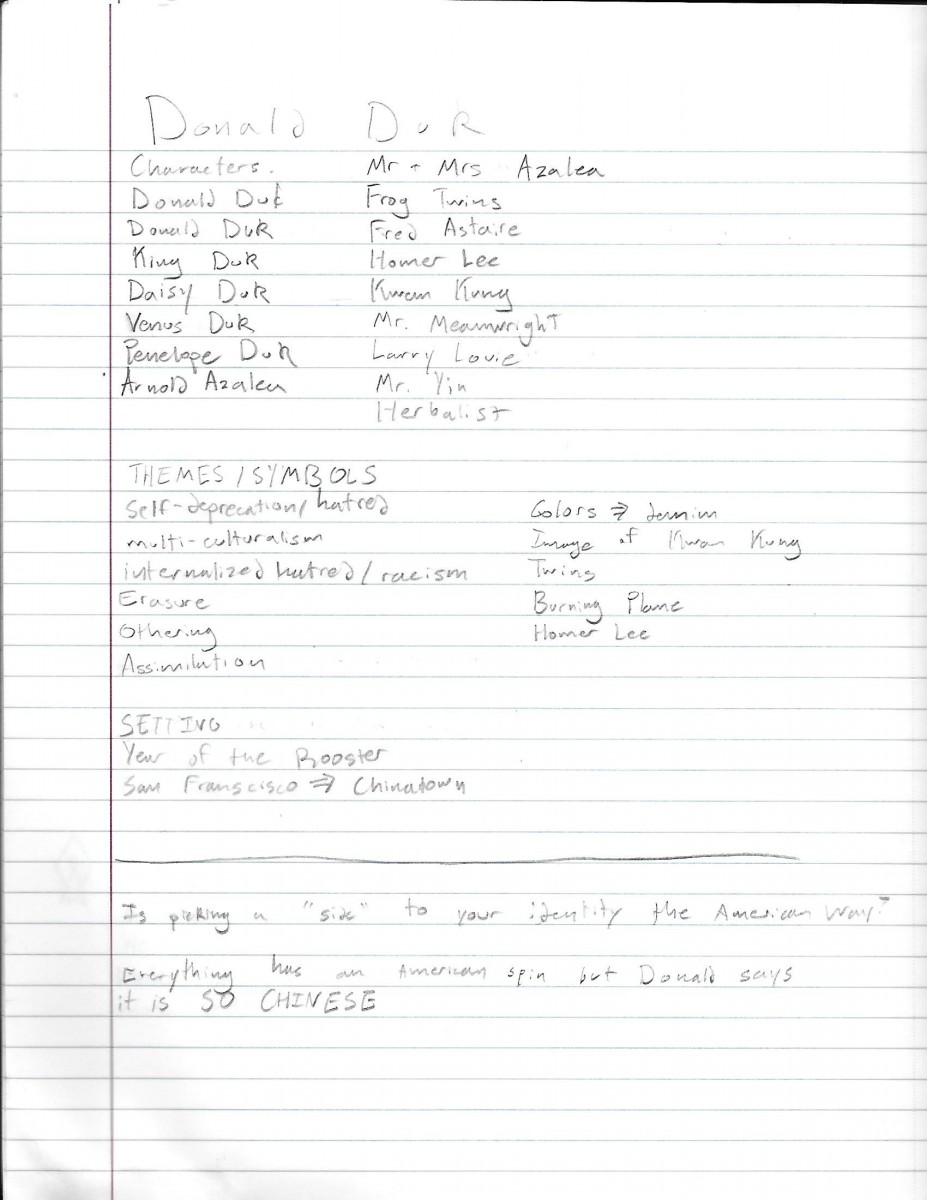 Donald Duk
Characters. Mr + Mrs Azalea
Donald Duk Frog Twins
Donald Duk Fred Astaire
King Duk Homer Lee
Daisy Duk Kwan Kung
Venus Duk Mr. Meanwright
Penelope Duk Larry Louie
Arnold Azalea Mr. Yin
Herbalist
THEMES / SYMBOLS
Self-deprecation/ hatred Colors ⇒
multi-culturalism Image of Kwan Kung
internalized hatred / racism Twins
Erasure Burning Plane
Othering Homer Lee
Assimilation
SETTING
Year of the Rooster
San Franscisco ⇒ Chinatown
Is picking a "side" to your identity the American way?
Everything has an American spin but Donald says
it is SO CHINESE